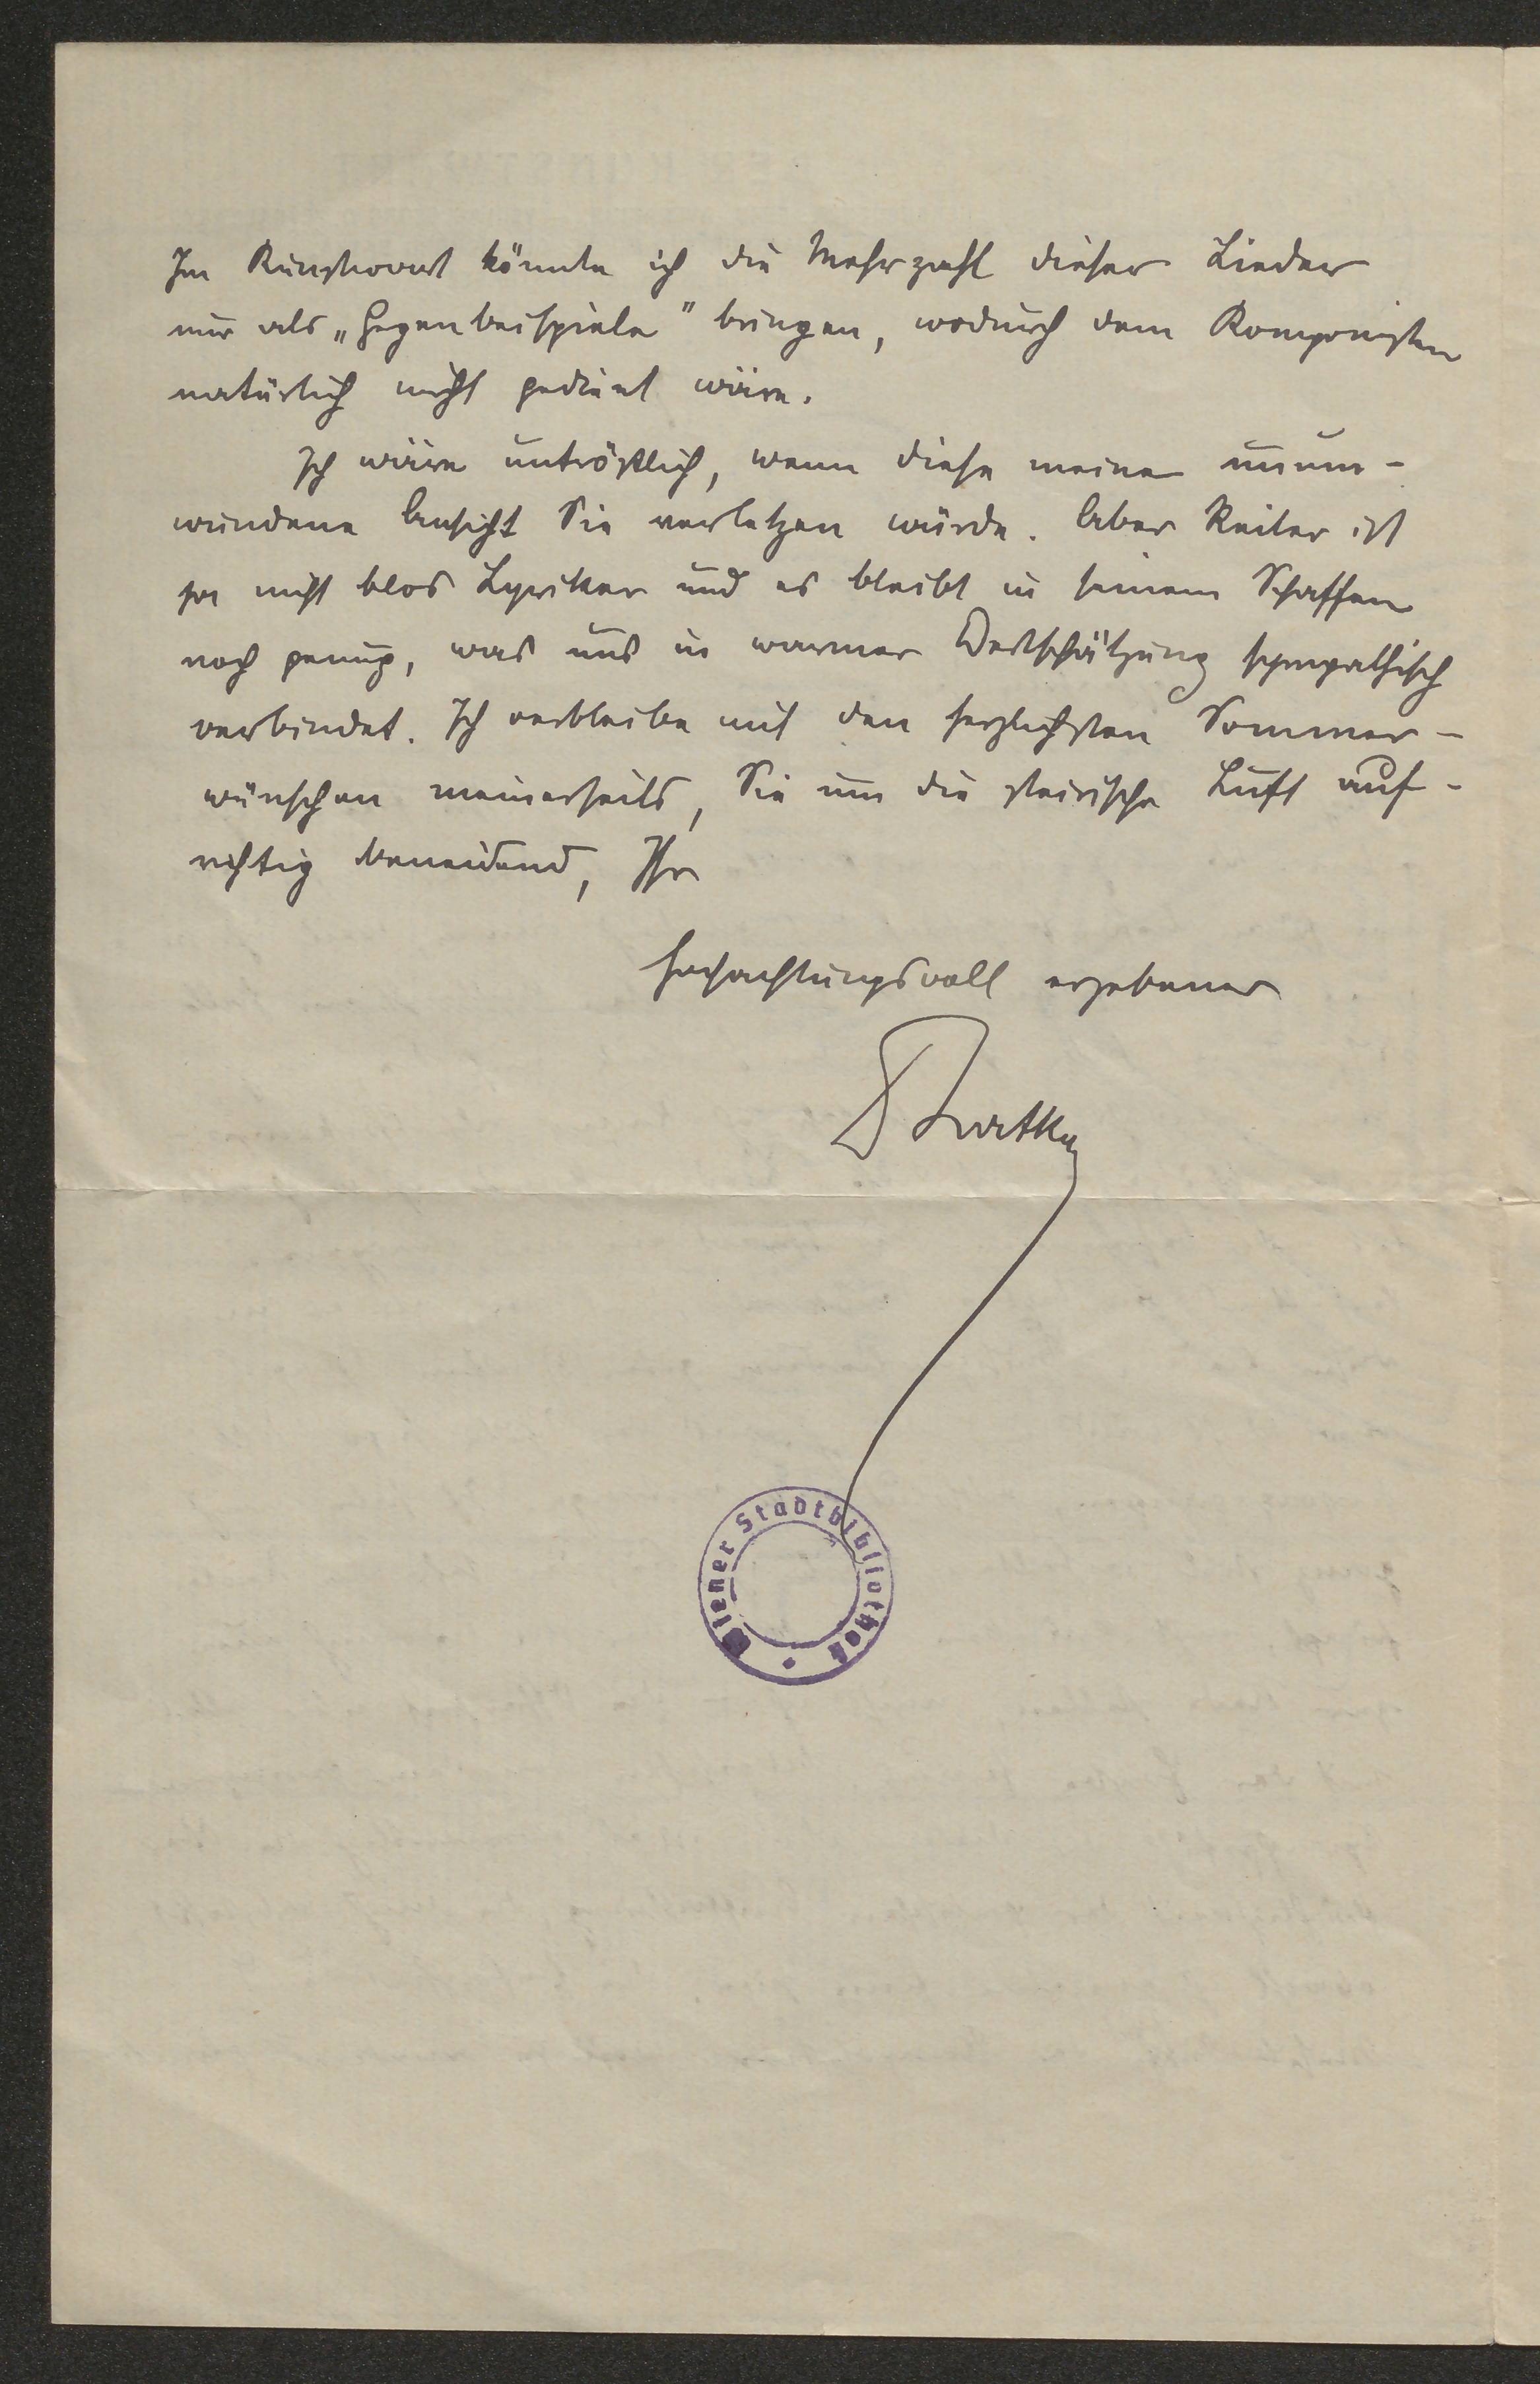 Im Kunstwart könnte ich die Mehrzahl dieser Lieder
nur als „Gegenbeispiele" bringen, wodurch dem Komponisten
natürlich nicht gedient wäre.
Ich wäre untröstlich, wenn diese meine unum-
wundene Ansicht Sie verletzen würde. Aber Reiter ist
ja nicht blos Lyriker und es bleibt in seinem Schaffen
noch genug, was uns in warmer Wertschätzung sympathisch
verbindet. Ich verbleibe mit den herzlichsten Sommer-
wünschen meinerseits, Sie um die steirische Luft auf-
richtig beneidend, Ihr
hochachtungsvoll ergebener
DrBatka
Wiener Stadtbibliothek